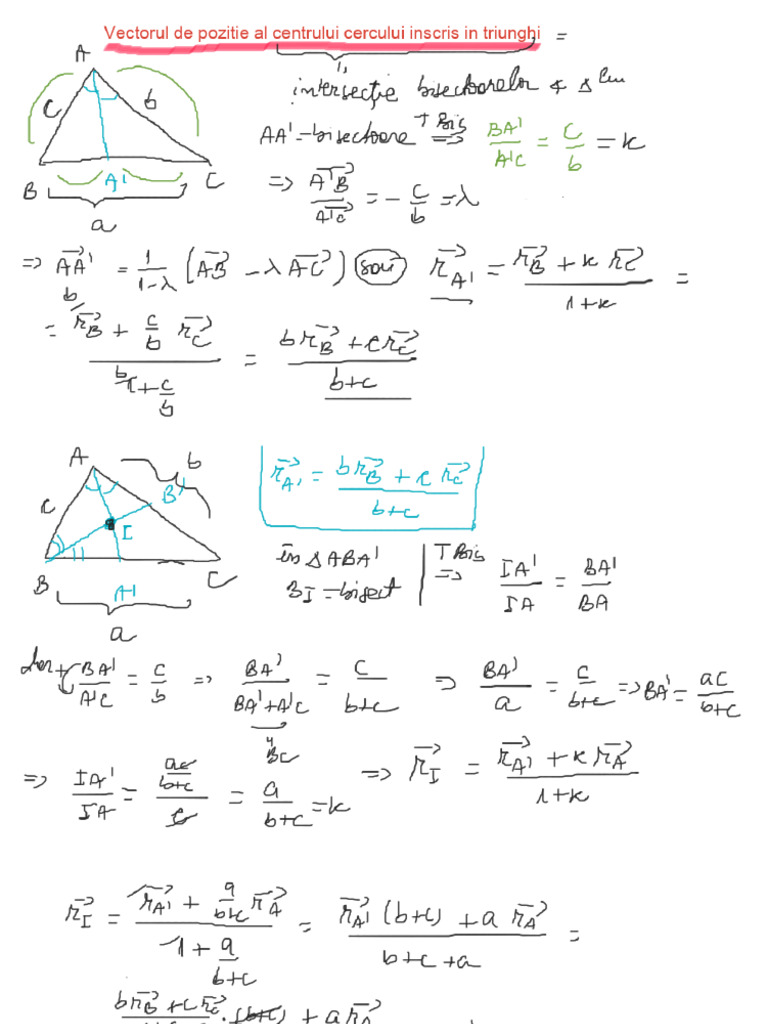 Vectorul de pozitie al centrului cercului inscris in triunghi =
intersecție bisectoarelor ∢ Δ lui
A
c b
B A' C
a
AA' - bisectoare =T Bis=> BA'/A'C = c/b = k
=> A'B/A'C = - c/b = λ
=> AA' = 1/(1-λ) (AB - λ AC) sau r_A' = (r_B + k r_C)/(1+k) =
= (r_B + c/b r_C)/(1 + c/b) = (b r_B + c r_C)/(b+c)
r_A' = (b r_B + c r_C)/(b+c)
A b
c B'
I
B A' C
a
în Δ ABA'
BI - bisect
T Bis => IA'/IA = BA'/BA
dar BA'/A'C = c/b => BA'/(BA'+A'C) = c/(b+c) => BA'/a = c/(b+c) => BA' = ac/(b+c)
BC
=> IA'/IA = (ac/(b+c))/c = a/(b+c) = k => r_I = (r_A' + k r_A)/(1+k)
r_I = (r_A' + a/(b+c) r_A)/(1 + a/(b+c)) = (r_A' (b+c) + a r_A)/(b+c+a) =
b r_B + c r_C · (b+c) + a r_A